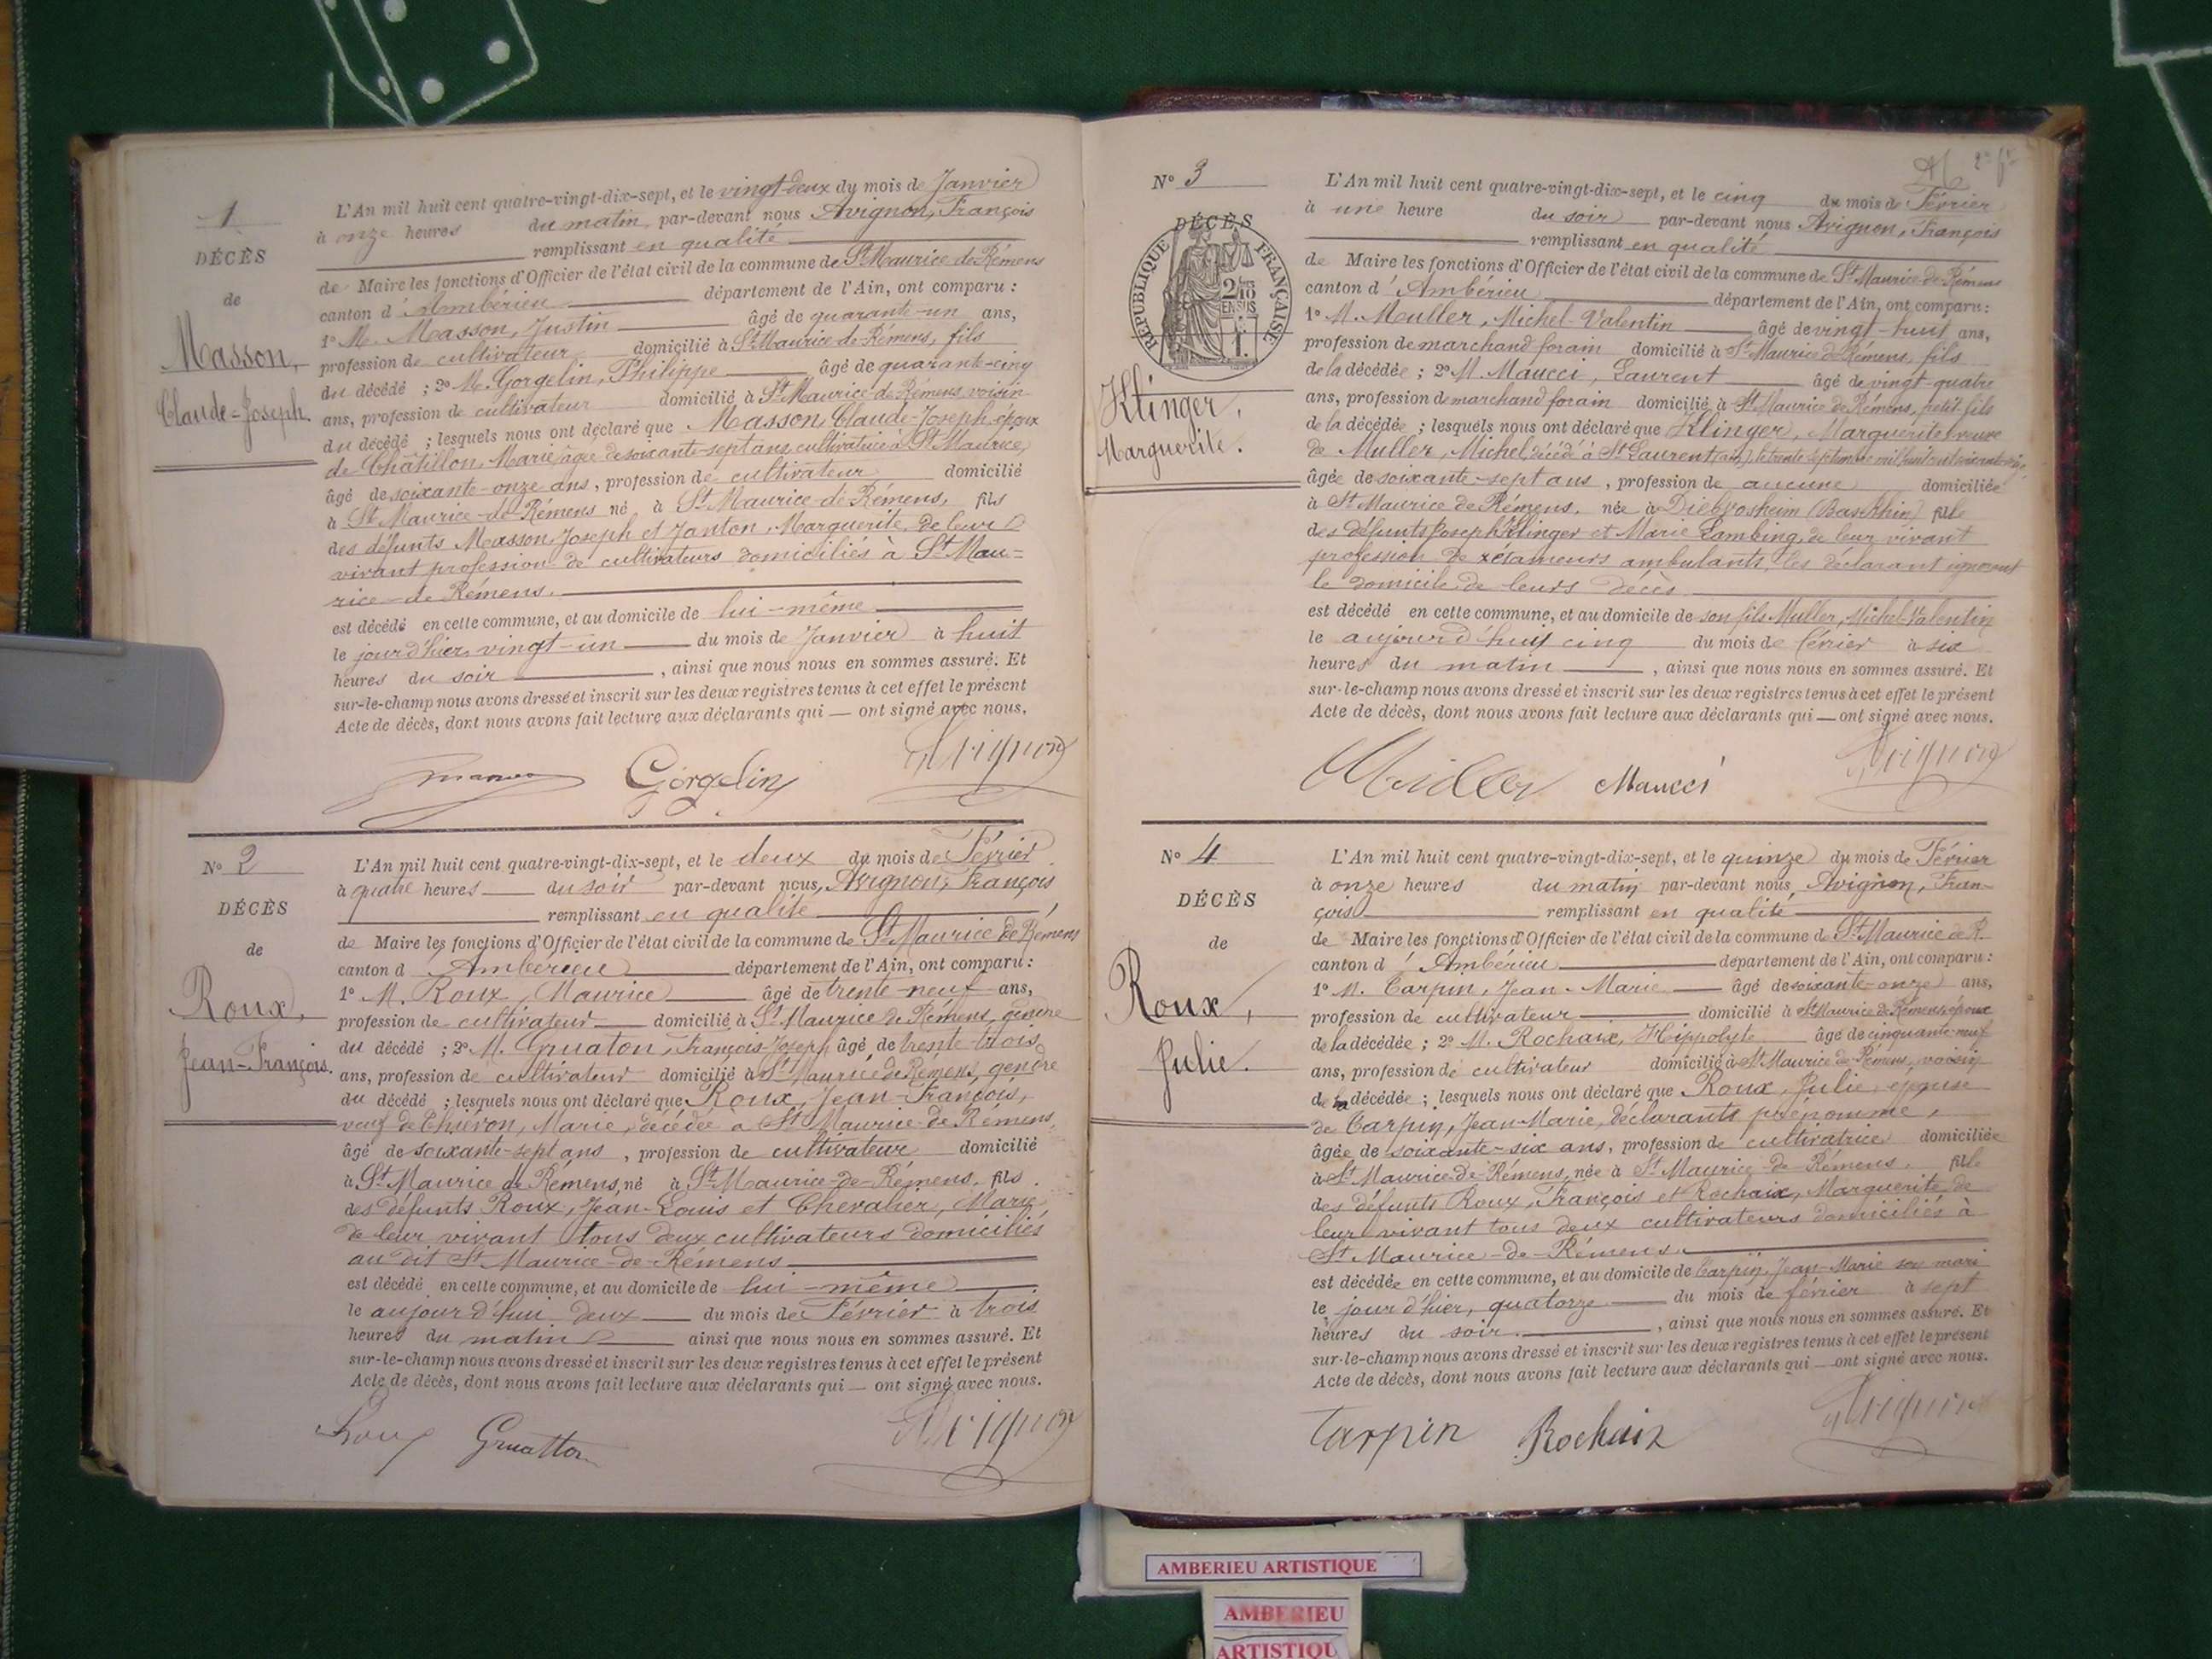 1
DÉCÈS
de
Masson,
Claude-Joseph.
L'An mil huit cent quatre-vingt-dix-sept, et le vingt-deux du mois de Janvier
à onze heures du matin, par-devant nous Avignon, François
remplissant en qualité
de Maire les fonctions d'Officier de l'état civil de la commune de St Maurice de Rémens
canton d'Ambérieu département de l'Ain, ont comparu :
1º M. Masson, Justin âgé de quarante-un ans,
profession de cultivateur domicilié à St Maurice-de-Rémens, fils
du décédé ; 2º M. Gorgelin, Philippe âgé de quarante-cinq
ans, profession de cultivateur domicilié à St Maurice-de-Rémens voisin
du décédé ; lesquels nous ont déclaré que Masson, Claude-Joseph, époux
de Châtillon, Marie âgée de soixante-sept ans cultivatrice à St Maurice,
âgé de soixante-onze ans, profession de cultivateur domicilié
à St Maurice-de-Rémens né à St Maurice-de-Rémens, fils
des défunts Masson Joseph et Janton, Marguerite, de leur
vivant profession de cultivateurs domiciliés à St Mau-
rice-de Rémens.
est décédé en cette commune, et au domicile de lui-même
le jour d'hier, vingt-un du mois de Janvier à huit
heures du soir, ainsi que nous nous en sommes assuré. Et
sur-le-champ nous avons dressé et inscrit sur les deux registres tenus à cet effet le présent
Acte de décès, dont nous avons fait lecture aux déclarants qui — ont signé avec nous.
Gorgelin Avignon
Nº 2
DÉCÈS
de
Roux,
Jean-François.
L'An mil huit cent quatre-vingt-dix-sept, et le deux du mois de Février
à quatre heures du soir par-devant nous, Avignon, François
remplissant en qualité
de Maire les fonctions d'Officier de l'état civil de la commune de St Maurice de Rémens
canton d Ambérieu département de l'Ain, ont comparu :
1º M. Roux, Maurice âgé de trente-neuf ans,
profession de cultivateur domicilié à St Maurice de Rémens, gendre
du décédé ; 2º M. Gruaton, François-Joseph âgé de trente-trois
ans, profession de cultivateur domicilié à St Maurice de Rémens, gendre
du décédé ; lesquels nous ont déclaré que Roux, Jean-François,
veuf de Thiévon, Marie, décédée à St Maurice-de Rémens,
âgé de soixante-sept ans, profession de cultivateur domicilié
à St Maurice de Rémens, né à St Maurice-de-Rémens, fils
des défunts Roux, Jean-Louis et Chevalier, Marie
de leur vivant tous deux cultivateurs domiciliés
au dit St Maurice-de-Rémens
est décédé en cette commune, et au domicile de lui-même
le aujourd'hui deux du mois de Février à trois
heures du matin ainsi que nous nous en sommes assuré. Et
sur-le-champ nous avons dressé et inscrit sur les deux registres tenus à cet effet le présent
Acte de décès, dont nous avons fait lecture aux déclarants qui — ont signé avec nous.
Roux Gruatton Avignon
Nº 3
DÉCÈS
RÉPUBLIQUE FRANÇAISE
2/10 EN SUS
Klinger,
Marguerite.
L'An mil huit cent quatre-vingt-dix-sept, et le cinq du mois de Février
à une heure du soir par-devant nous Avignon, François
remplissant en qualité
de Maire les fonctions d'Officier de l'état civil de la commune de St Maurice-de-Rémens
canton d'Ambérieu département de l'Ain, ont comparu :
1º M. Muller, Michel-Valentin âgé de vingt-huit ans,
profession de marchand forain domicilié à St Maurice de Rémens, fils
de la décédée ; 2º M. Maucci, Laurent âgé de vingt-quatre
ans, profession de marchand forain domicilié à St Maurice de Rémens, petit-fils
de la décédée ; lesquels nous ont déclaré que Klinger, Marguerite veuve
de Muller, Michel décédé à St Laurent (ain), le trente septembre mil huit cent
âgée de soixante-sept ans, profession de aucune domiciliée
à St Maurice de Rémens, née à Diebrosheim (Bas Rhin) fille
des défunts Joseph Klinger et Marie Lambing, de leur vivant
profession de rétameurs ambulants, les déclarant ignorent
le domicile de leurs décès
est décédé en cette commune, et au domicile de son fils Muller, Michel-Valentin
le aujourd'hui cinq du mois de février à six
heures du matin, ainsi que nous nous en sommes assuré. Et
sur-le-champ nous avons dressé et inscrit sur les deux registres tenus à cet effet le présent
Acte de décès, dont nous avons fait lecture aux déclarants qui — ont signé avec nous.
Muller Maucci Avignon
Nº 4
DÉCÈS
de
Roux,
Julie.
L'An mil huit cent quatre-vingt-dix-sept, et le quinze du mois de Février
à onze heures du matin par-devant nous, Avignon, Fran-
çois remplissant en qualité
de Maire les fonctions d'Officier de l'état civil de la commune de St Maurice de R.
canton d'Ambérieu département de l'Ain, ont comparu :
1º M. Carpin, Jean-Marie âgé de soixante-onze ans,
profession de cultivateur domicilié à St Maurice de Rémens, époux
de la décédée ; 2º M. Rochaix, Hippolyte âgé de cinquante-neuf
ans, profession de cultivateur domicilié à St Maurice-de-Rémens, voisin
de la décédée ; lesquels nous ont déclaré que Roux, Julie, épouse
de Carpin, Jean-Marie, déclarants prénommé,
âgée de soixante-six ans, profession de cultivatrice domiciliée
à St Maurice-de-Rémens, née à St Maurice-de-Rémens. fille
des défunts Roux, François et Rochaix, Marguerite de
leur vivant tous deux cultivateurs domiciliés à
St Maurice-de-Rémens.
est décédée en cette commune, et au domicile de Carpin, Jean-Marie son mari
le jour d'hier, quatorze du mois de février à sept
heures du soir., ainsi que nous nous en sommes assuré. Et
sur-le-champ nous avons dressé et inscrit sur les deux registres tenus à cet effet le présent
Acte de décès, dont nous avons fait lecture aux déclarants qui — ont signé avec nous.
Tarpin Rochaix Avignon
AMBERIEU ARTISTIQUE
AMBERIEU
ARTISTIQU